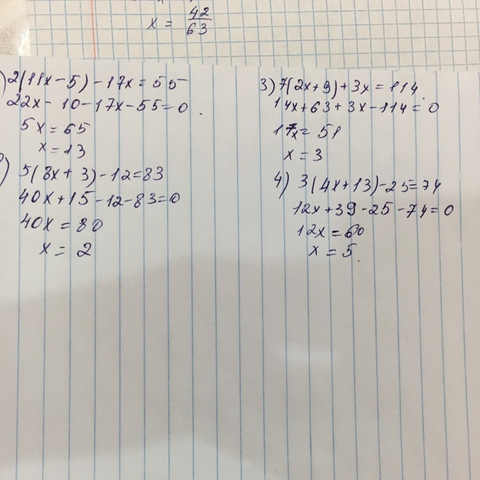 x = 42/63
) 2(11x-5)-17x=55
22x-10-17x-55=0.
5x=65
x=13
) 5(8x+3)-12=83
40x+15-12-83=0
40x=80
x=2
3) 7(2x+9)+3x=114
14x+63+3x-114=0
17x=51
x=3
4) 3(4x+13)-25=74
12x+39-25-74=0
12x=60
x=5.